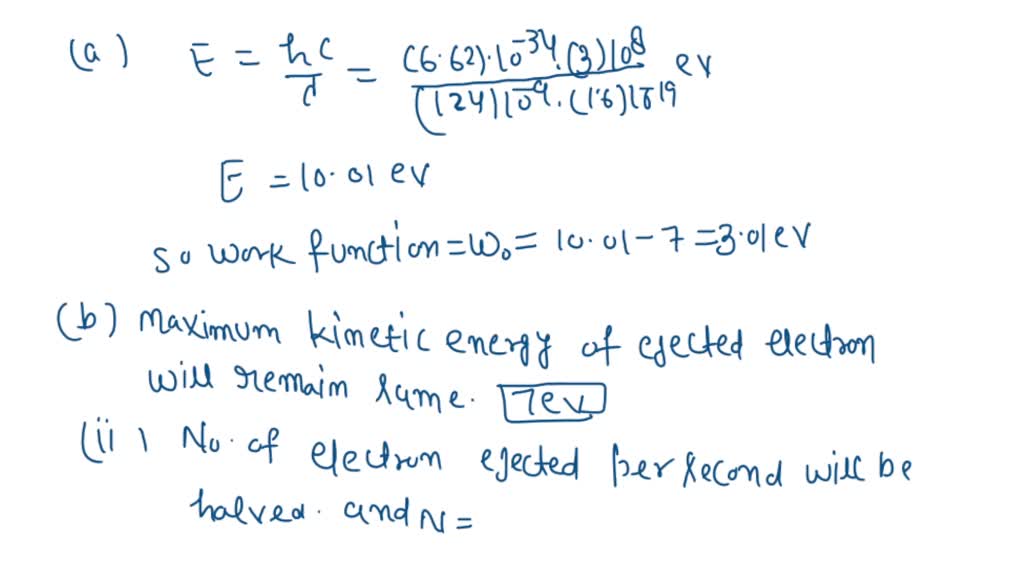 (a) E = hc/d = (6.62)·10^-34·(3)10^8 / (124)10^-9·(1.6)10^-19 ev
E = 10.01 ev
so work function = W₀ = 10.01 - 7 = 3.01 eV
(b) Maximum kinetic energy of ejected electron
will remain same. 7ev
(ii) No. of electron ejected per second will be
halved. and N =